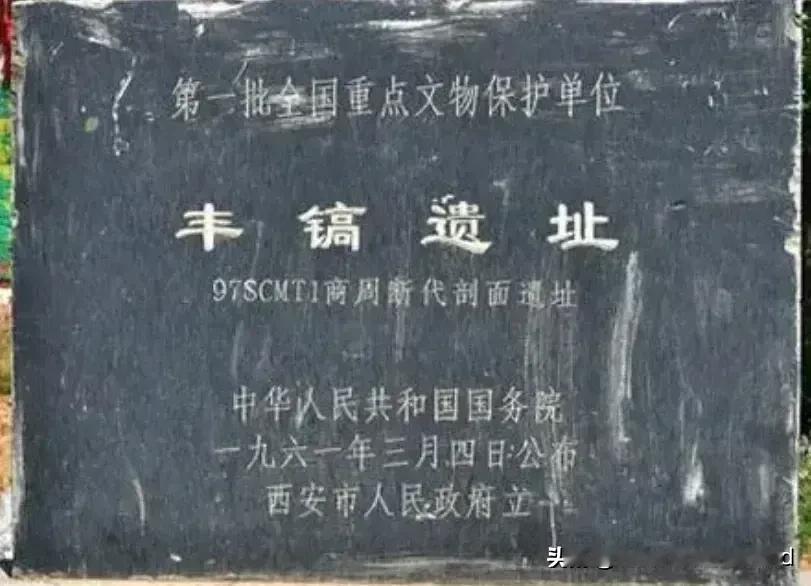 第一批全国重点文物保护单位
丰镐遗址
97SCMT1商周断代剖面遗址
中华人民共和国国务院
一九六一年三月四日公布
西安市人民政府立
头
d